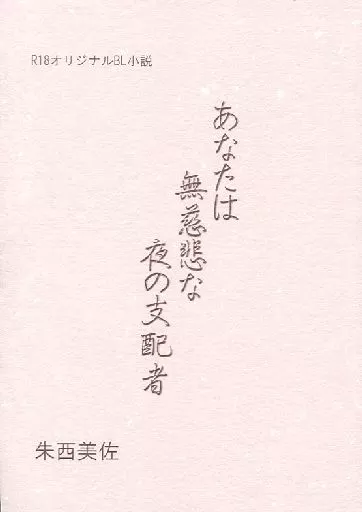 R18オリジナルBL小説
あなたは
無慈悲な
夜の支配者
朱西美佐